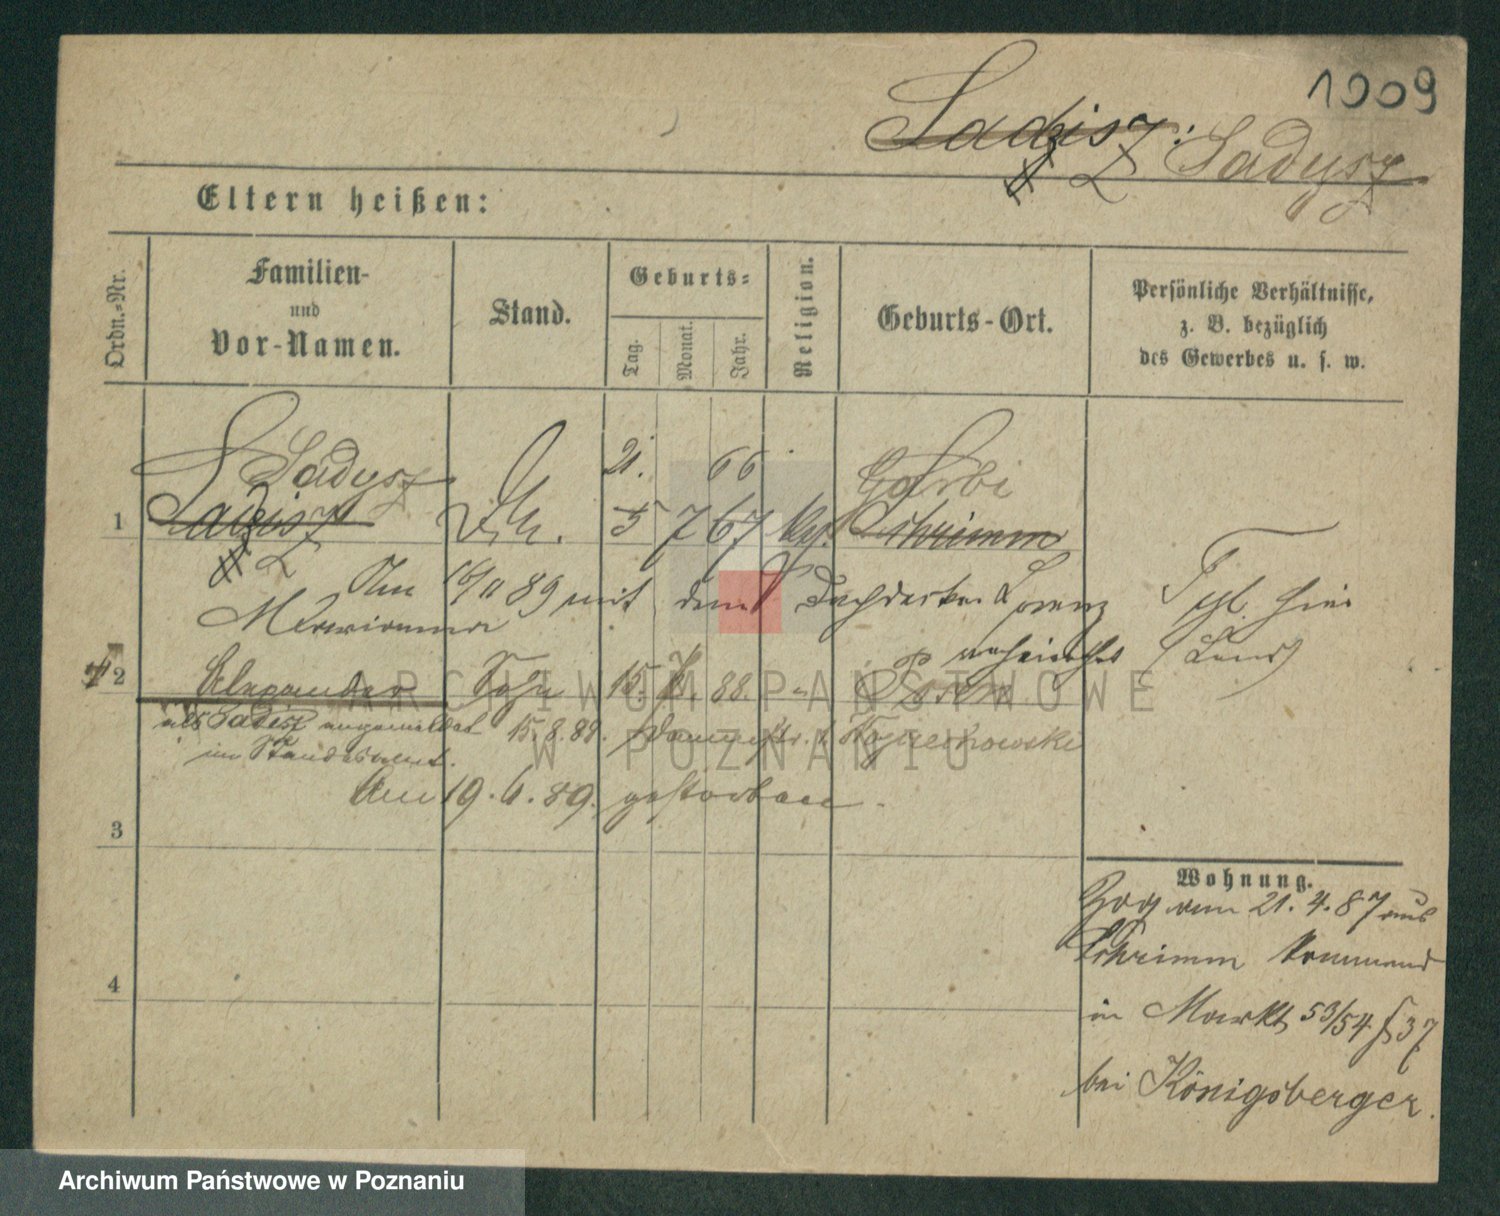 1909
Ladisz. Ladysz
Eltern heißen:
Ordn.-Nr.
Familien-
und
Vor-Namen.
Stand.
Geburts-
Tag.
Monat.
Jahr.
Religion.
Geburts-Ort.
Persönliche Verhältnisse,
z. B. bezüglich
des Gewerbes u. s. w.
Ladysz 21. 66
1 Ladisz 5 7 67 Schrimm
Am 16/11 89 mit dem Dachdecker Lorenz
verheirathet
2 Alexander Sohn 15. 88. "
als Ladisz angemeldet 15.8.89.
im Standesamt.
Am 19. 6. 89. gestorben.
3
4
Wohnung.
Zog am 21. 4. 87 aus
Schrimm kommend
in Markt 53/54 37
bei Königsberger.
ARCHIWUM PAŃSTWOWE
W POZNANIU
Archiwum Państwowe w Poznaniu